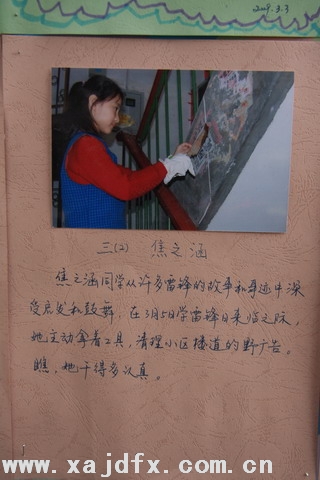 2009.3.3
三(2) 焦之涵
焦之涵同学从许多雷锋的故事和事迹中深
受启发和鼓舞.在3月5日学雷锋日来临之际,
她主动拿着工具,清理小区楼道的野广告。
瞧,她干得多认真。
www.xajdfx.com.cn